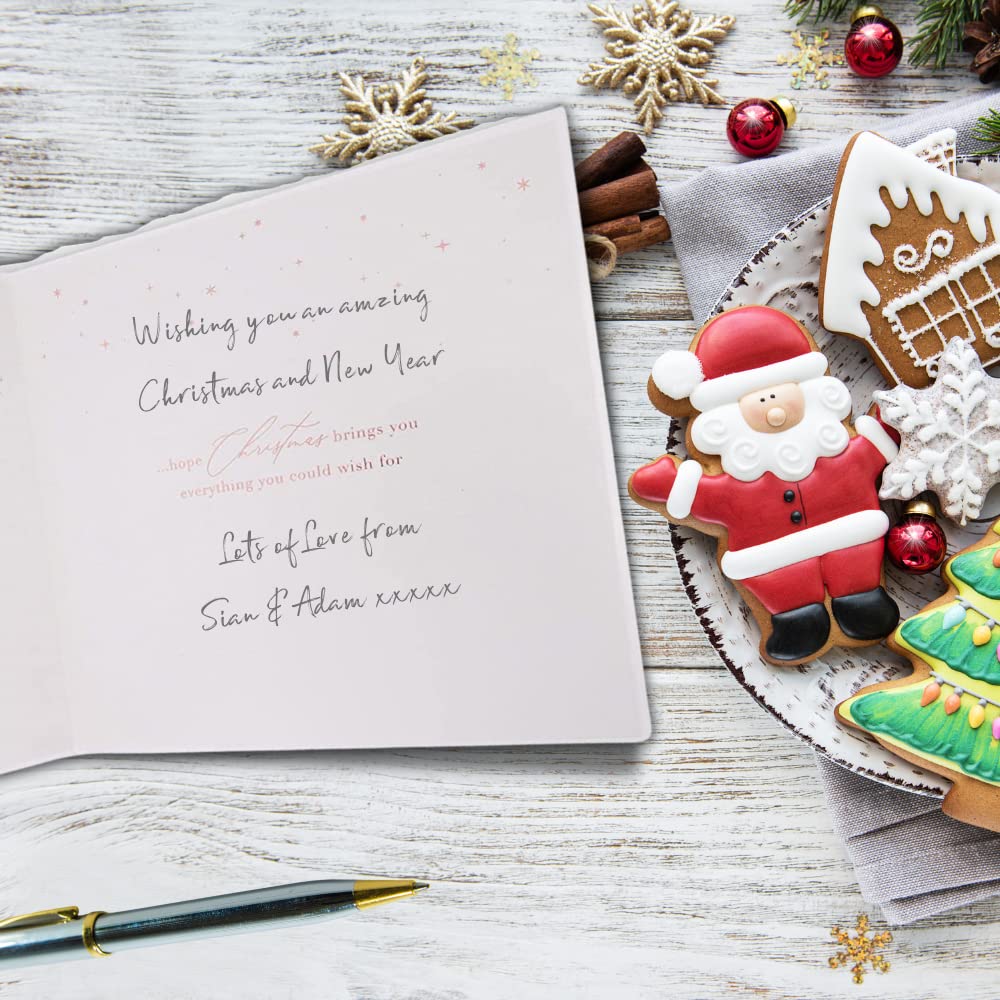 Wishing you an amzing
Christmas and New Year
...hope Christmas brings you
everything you could wish for
Lots of Love from
Sian & Adam xxxxx